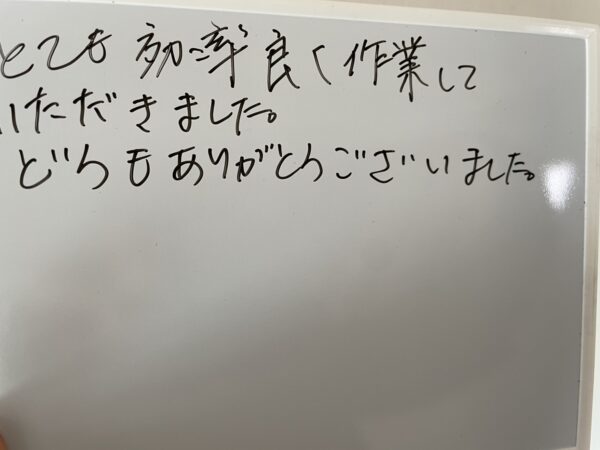 とても効率良く作業して
いただきました。
どうもありがとうございました。